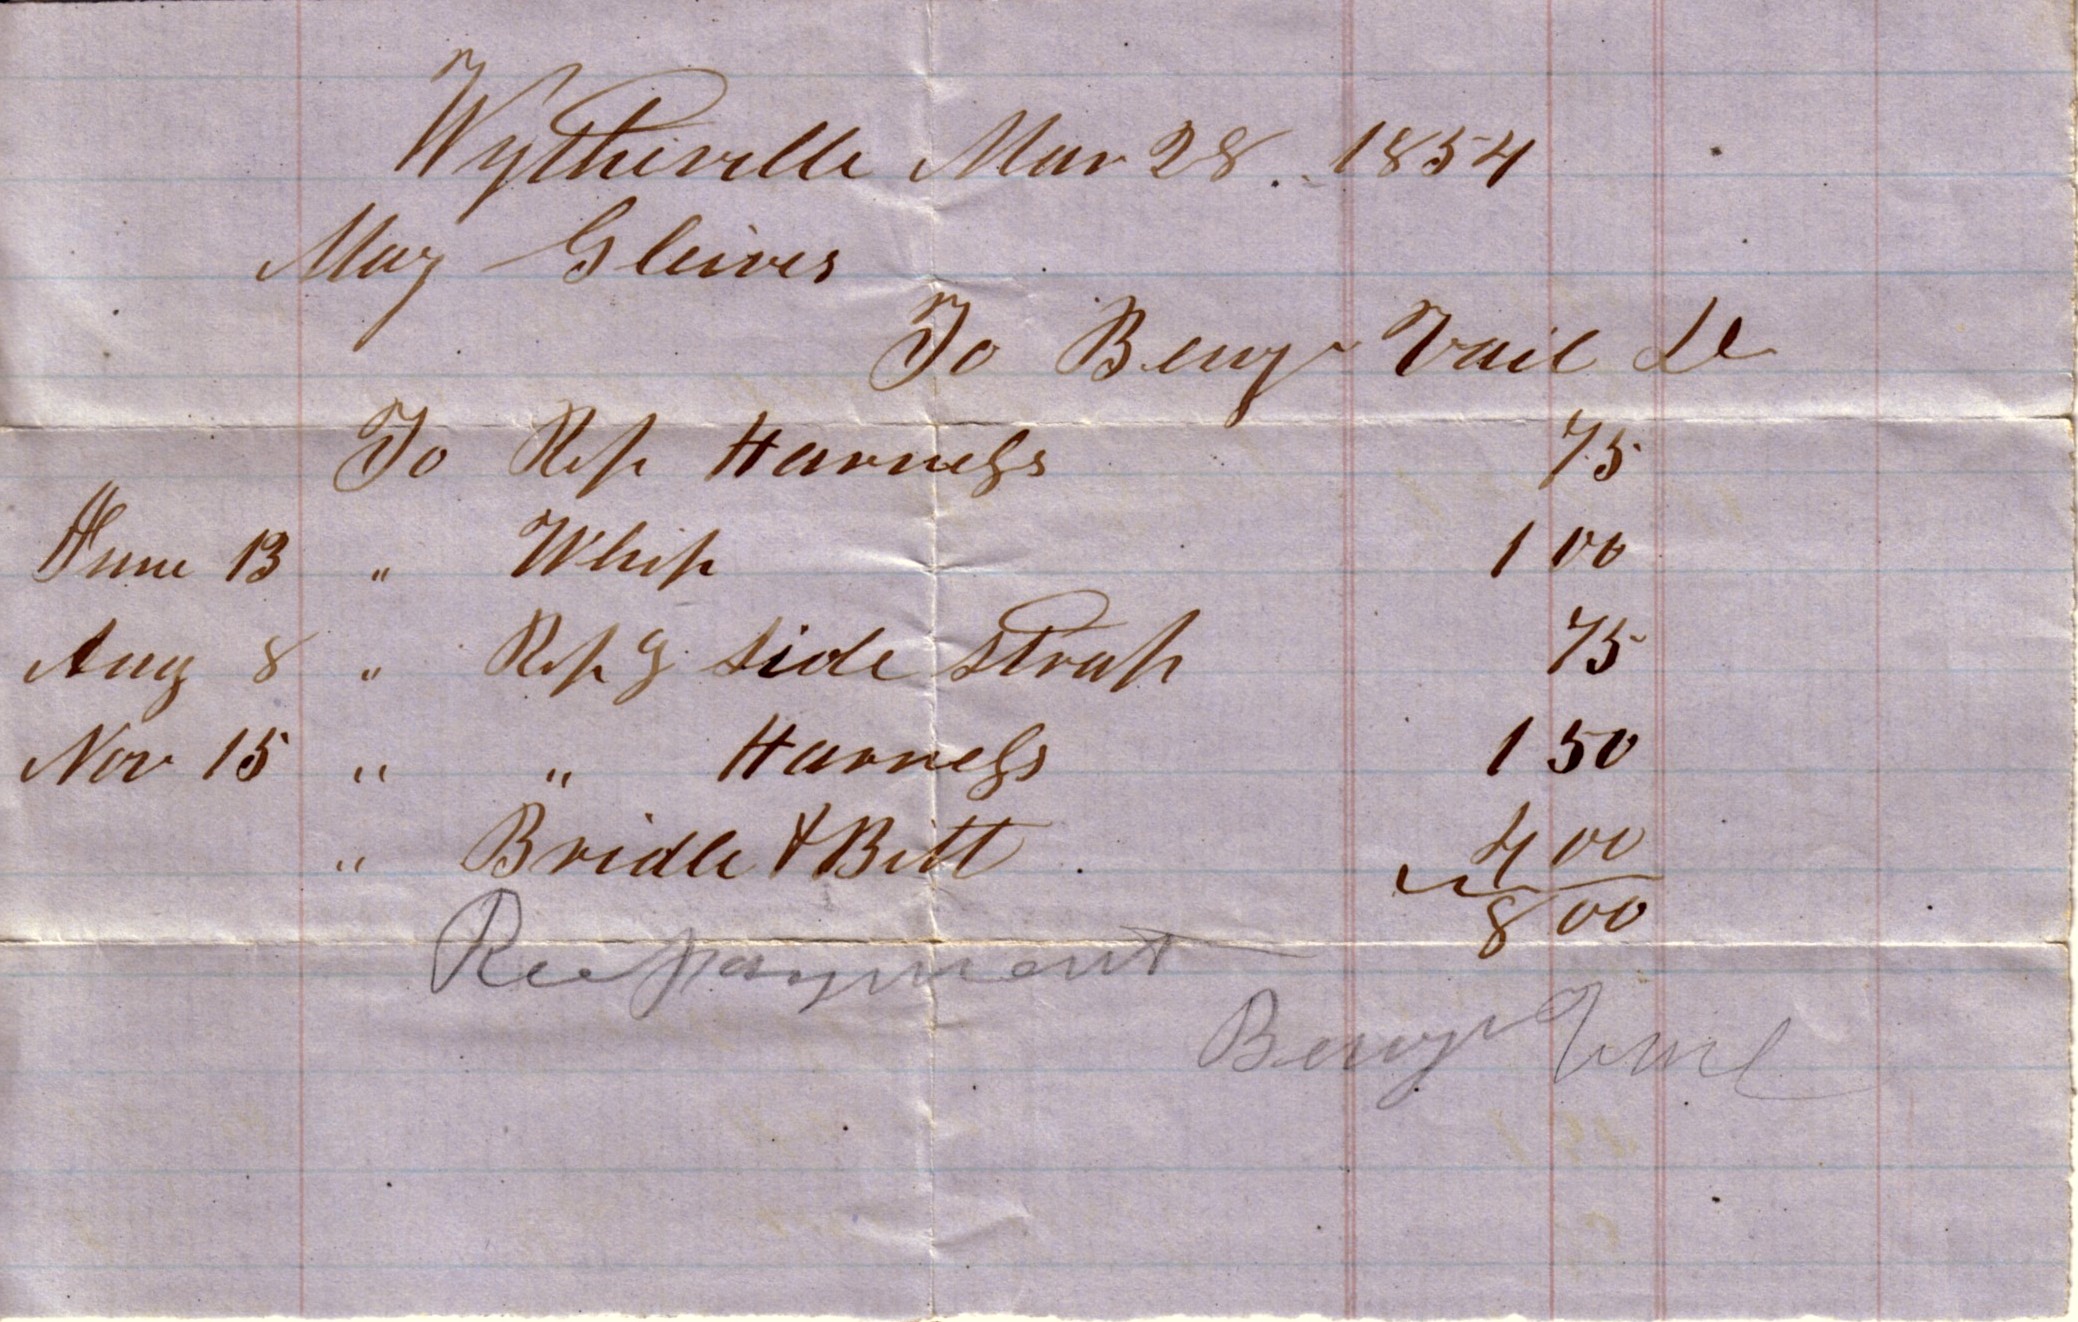 Wytheville Mar 28. 1854
Maj Gleives
To Benj Vail Dr
To Rep Harness 75
June 13 " Whip 1 00
Aug 8 " Repg side strap 75
Nov 15 " " Harness 1 50
" Bridle & Bitt 4 00
8 00
Rec payment
Benj Vail